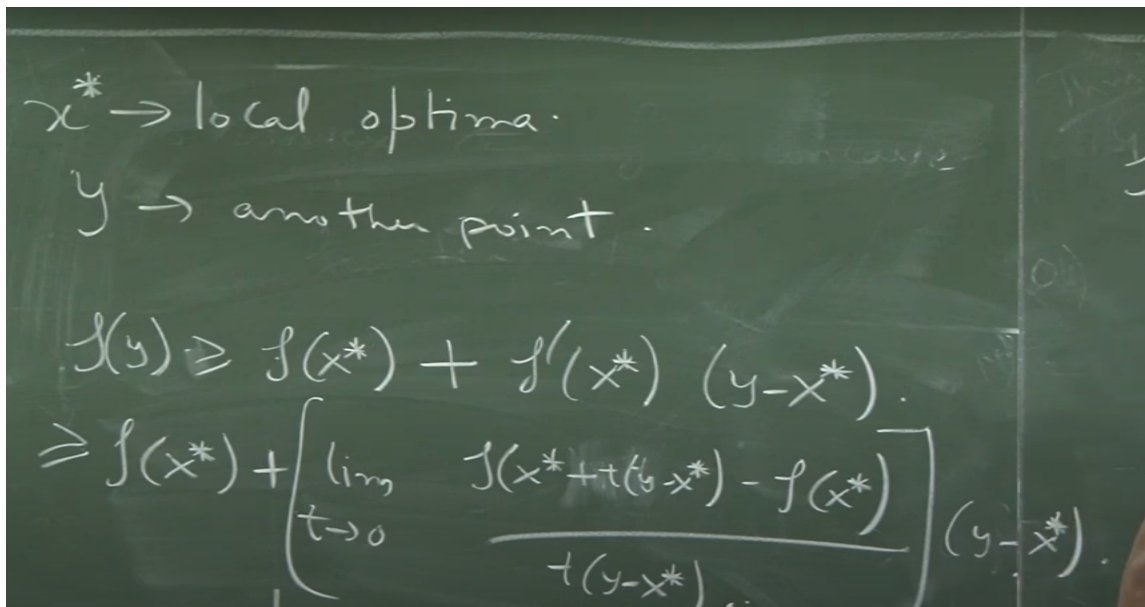 x* → local optima.
y → another point.
f(y) ≥ f(x*) + f'(x*) (y-x*).
≥ f(x*) + [ lim t→0 f(x*+t(y-x*) - f(x*) / t(y-x*) ] (y-x*).